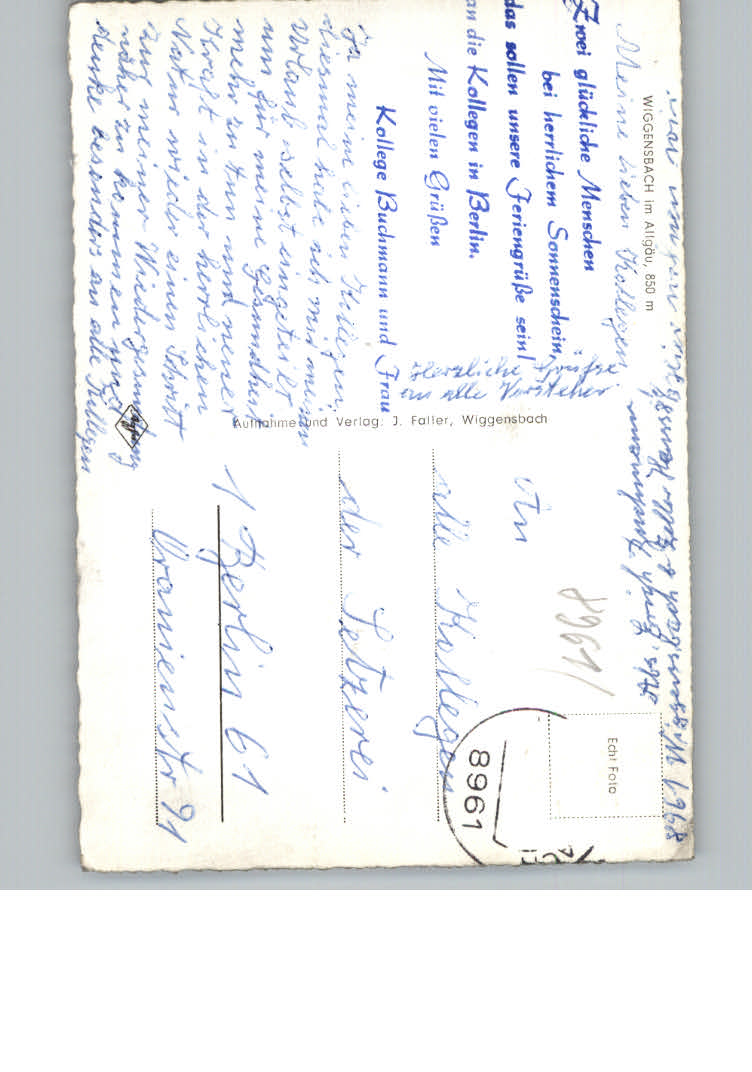 WIGGENSBACH im Allgäu, 850 m
Meine lieben Kollegen
Zwei glückliche Menschen
bei herrlichem Sonnenschein,
das sollen unsere Feriengrüße sein!
an die Kollegen in Berlin.
Mit vielen Grüßen
Kollege Buchmann und Frau
Ja meine lieben Kollegen
diesmal habe ich mir meinen
Urlaub selbst eingeteilt
um für meine Gesundheit
mehr zu tun und neuer
Kraft in der herrlichen
Natur wieder einen Schritt
zur meiner Wiedergesundung
näher zu kommen und
denke besonders an alle Kollegen
Herzliche Grüße
an alle Vorsteher
Aufnahme und Verlag: J. Faller, Wiggensbach
Agfa
Echt Foto
8961
8961
An
alle Kollegen
der Setzerei
1 Berlin 61
Oranienstr 91
8961 Wiggensbach